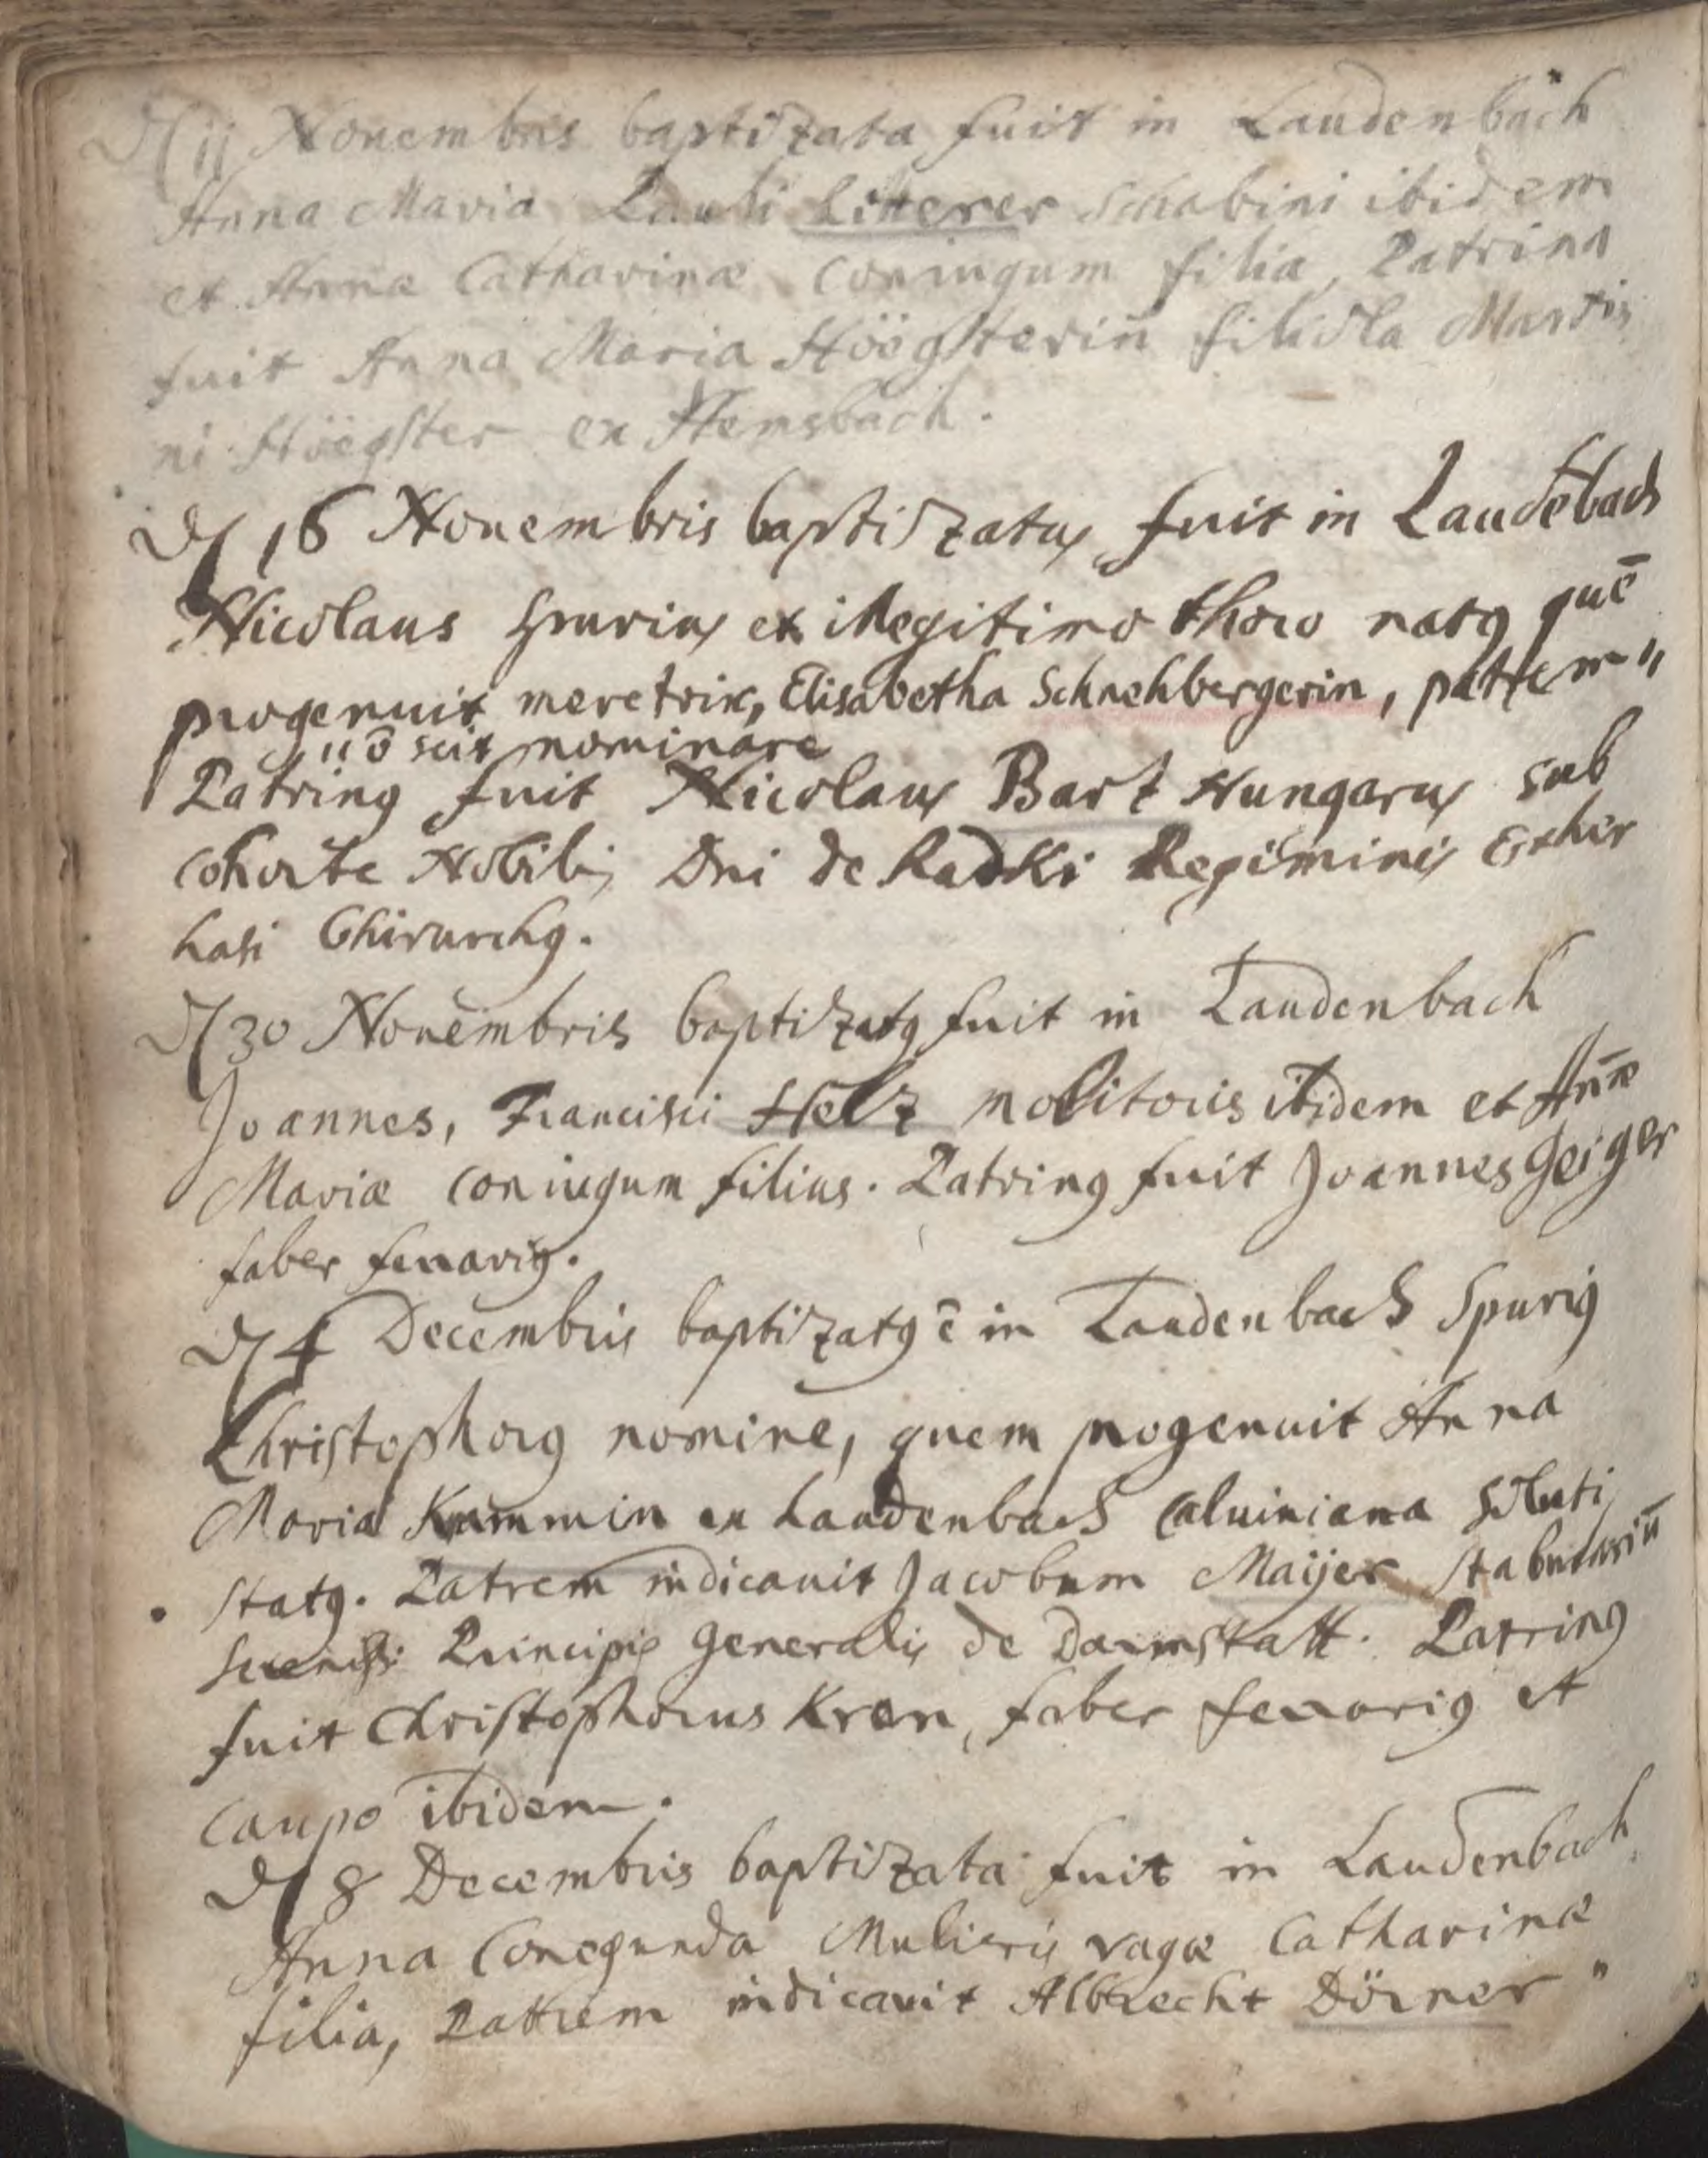 D 11 Nouembris baptizata fuit in Laudenbach
Anna Maria Pauli Litterer Schabini ibidem
et Annæ Catharinæ Coniugum filia, Patrina
fuit Anna Maria Höögsterin filiola Marti
ni Höegster ex Hemsbach.
D 16 Nouembris baptizatus fuit in Laudēbach
Nicolaus spurius ex illegitimo thoro natus quē
progenuit meretrix, Elisabetha Schnehbergerin, patrem "
" ō scit nominare
Patrinus fuit Nicolaus Bart Hungarus sub
cohorte Nobilis Dni de Radki Regiminis Ester
hasi Chirurchus.
D 30 Nouembris baptizatus fuit in Laudenbach
Joannes, Francisci Helz molitoris ibidem et Añæ
Mariæ coniugum filius. Patrinus fuit Joannes Geiger
faber ferrarius.
D 4 Decembris baptizatus ē in Laudenbach Spurius
Christophorus nomine, quem progenuit Anna
Maria Kammin ex Laudenbach Caluiniana soluti
status. Patrem indicauit Jacobum Maijer stabulariū
Principis Generalis de Darmstatt. Patrinus
fuit Christophorus Kren, faber ferrarius et
caupo ibidem.
D 8 Decembris baptizata fuit in Laudenbach
Anna Conegunda Mulieris vagæ Catharinæ
filia, Patrem indicauit Albrecht Dörner "